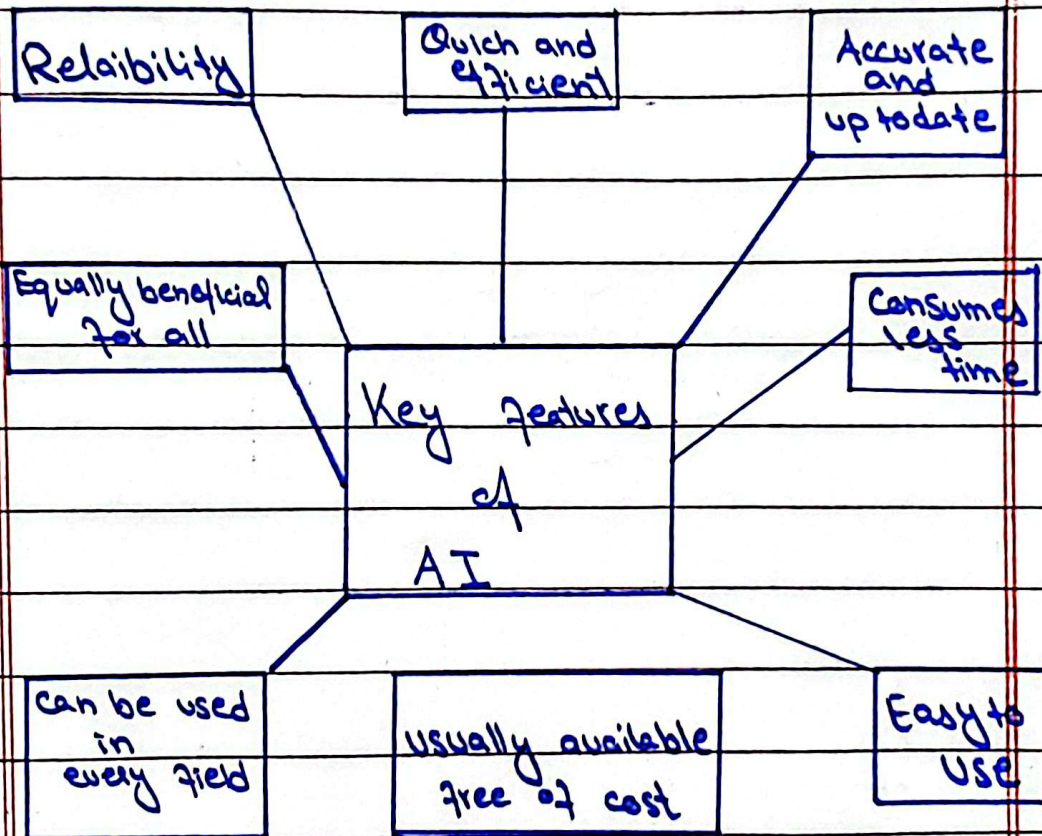 Relaibility
Quich and
efficient
Accurate
and
up todate
Equally beneficial
for all
Consumes
less
time
Key features
of
AI
can be used
in
every field
usually available
free of cost
Easy to
use